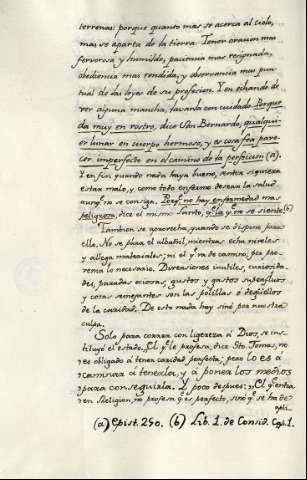 terrenas: porque quanto mas se acerca al cielo,
mas se aparta de la tierra. Tener oracion mas
fervorosa y humilde, paciencia mas resignada,
obediencia mas rendida, y observancia mas pun-
tual de las leyes de su profesion. Y en echando de
ver alguna mancha, lavarla con cuidado. Porque
da muy en rostro, dice San Bernardo, qualqui-
er lunar en cuerpo hermoso, y es cosa fea pare-
cer imperfecto en el camino de la perfeccion (a).
Y en fin quando nada haya bueno, sentir siquiera
estar malo, y como todo enfermo desear la salud
aunq.e no se consiga. Porq.e no hay enfermedad mas
peligrosa, dice el mismo Santo, q.e la q.e no se siente. (b)
Tambien se aprovecha, quando se dispone para
ello. No se para el albañil, mientras echa niveles
y allega materiales; ni el q.e va de camino, por pre-
venir lo necesario. Diversiones inutiles, curiosida-
des, paradas ociosas, gustos y gastos superfluos
y cosas semejantes son las polillas y degüellos
de la caridad. De esto nada hay sino por nuestra
culpa.
Solo para correr con ligereza á Dios, se ins-
tituyó el estado. El q.e le profesa, dice Sto. Tomas, no
es obligado á tener caridad perfecta; pero lo es á
caminar á tenerla, y á poner los medios
para conseguirla. Y poco despues: El q.e entra
en Religion, no profesa q.e es perfecto, sino q.e se ha de
apli-
(a) Epist. 290. (b) Lib. 1. de Consid. Cap. 1.